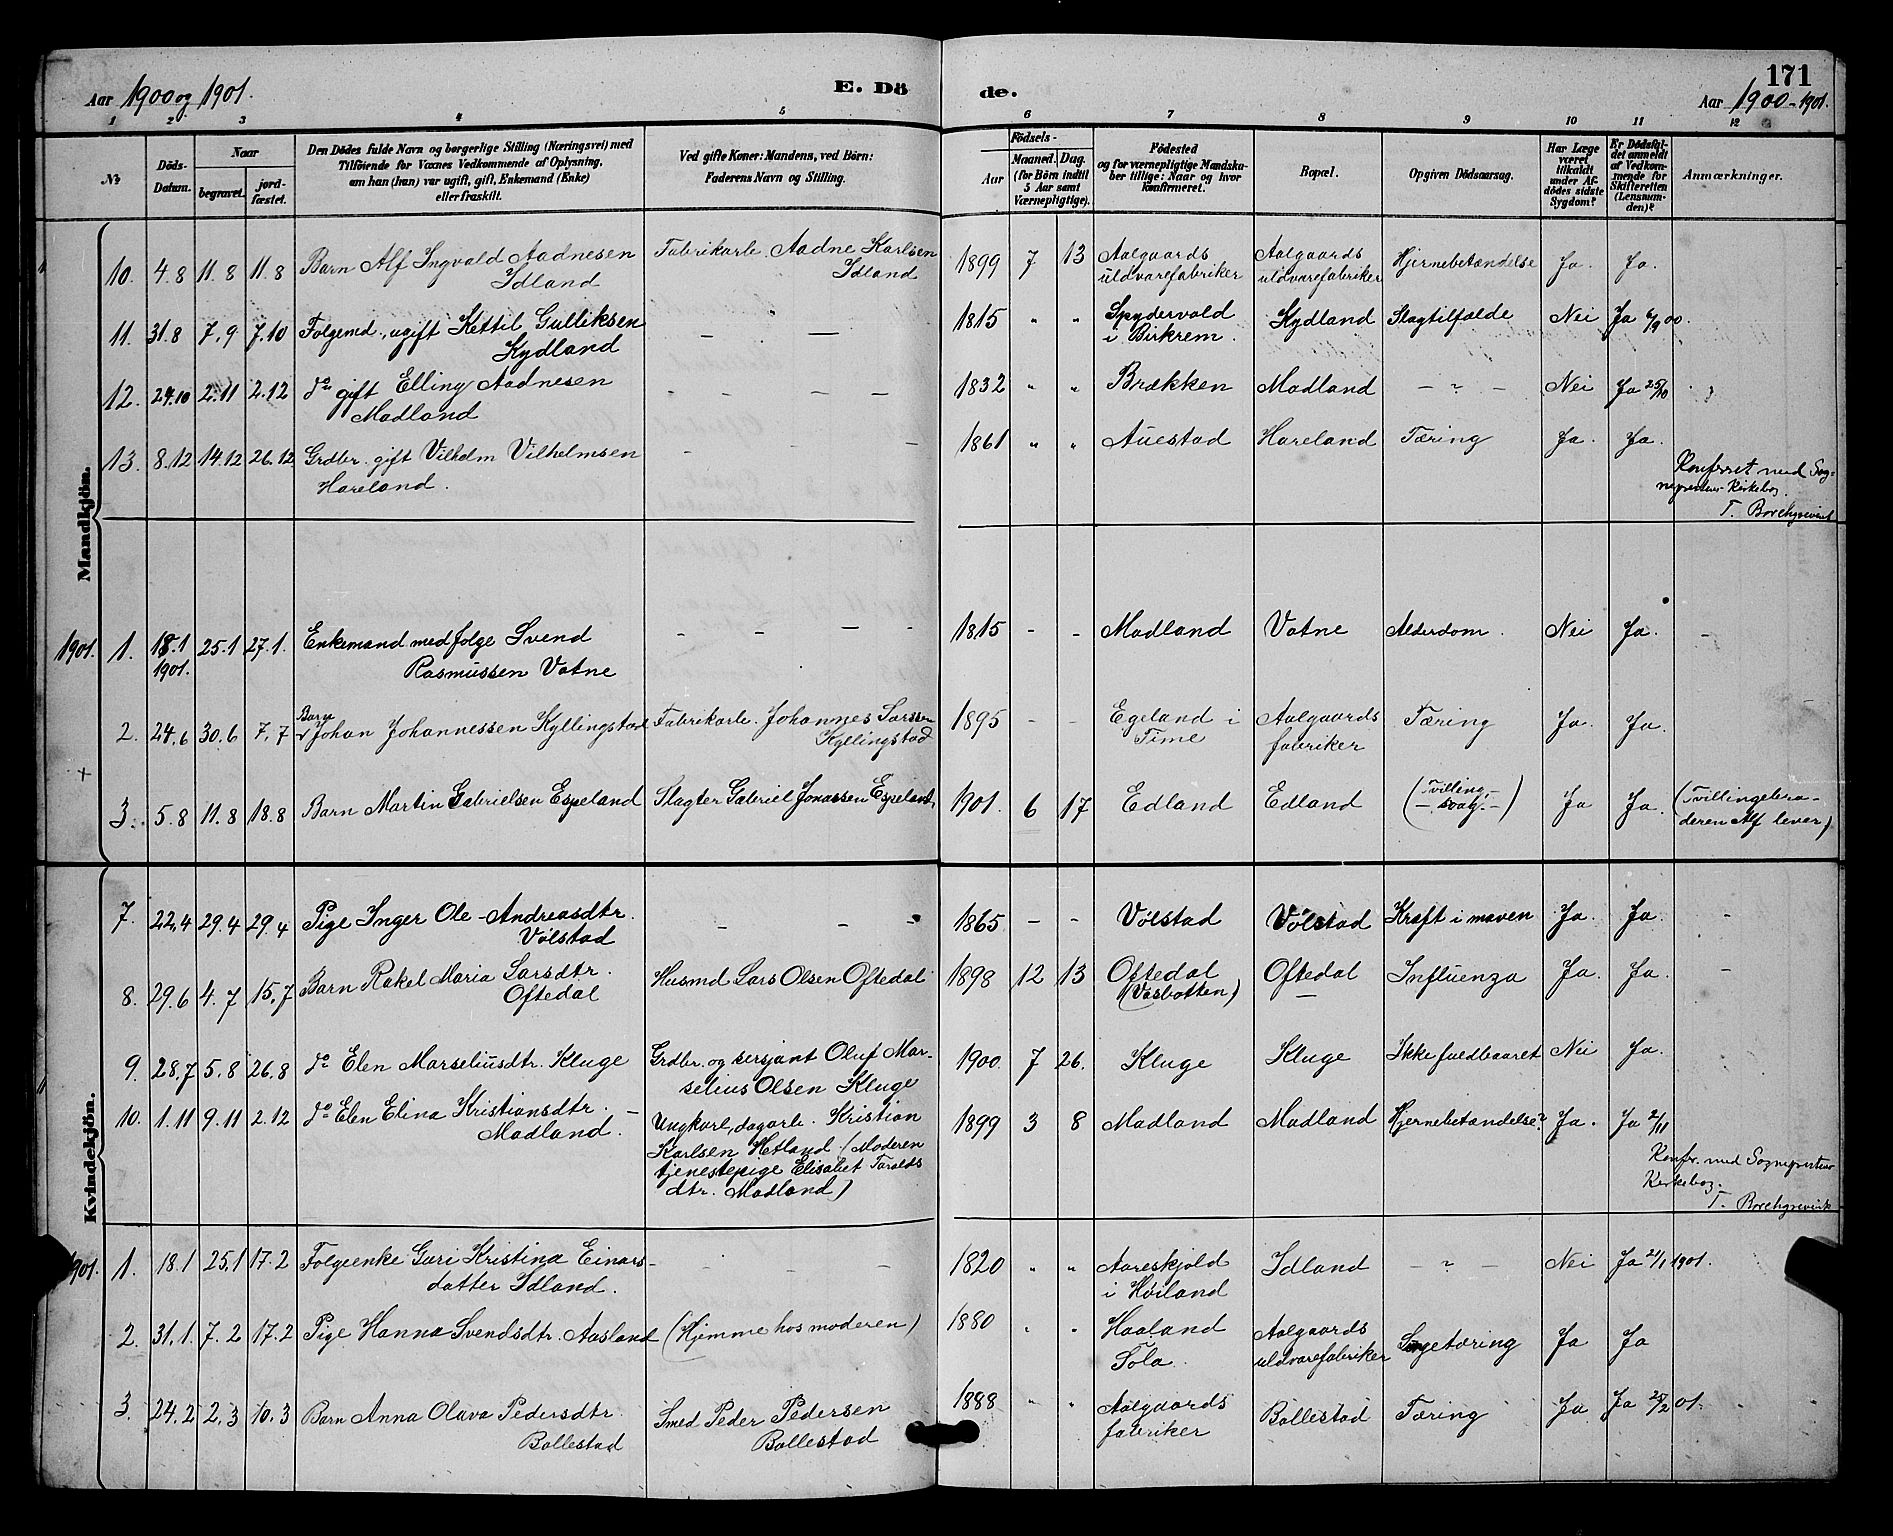 Aar 1900 og 1901.
E. Dö
de.
171
Aar 1900-1901.
1 2 3 4 5 6 7 8 9 10 11 12
№
Döds-
Datum.
Naar
begravet.
jord-
fæstet.
Den Dödes fulde Navn og borgerlige Stilling (Næringsvei) med
Tilföiende for Voxnes Vedkommende af Oplysning,
om han (hun) var ugift, gift, Enkemand (Enke)
eller fraskilt.
Ved gifte Koner: Mandens, ved Börn:
Faderens Navn og Stilling.
Födsels-
Aar
Maaned. Dag.
(for Börn indtil
5 Aar samt
Værnepligtige).
Födested
og for værnepligtige Mandska-
ber tillige: Naar og hvor
konfirmeret.
Bopæl.
Opgiven Dödsaarsag.
Har Læge
været
tilkaldt
under Af-
dödes sidste
Sygdom?
Er Dödsfal-
det anmeldt
af Vedkom-
mende for
Skifteretten
(Lensman-
den)?
Anmærkninger.
Mandkjön.
10. 4.8 11.8 11.8 Barn Alf Ingvald Aadnesen Fabrikarb. Aadne Karlsen 1899 7 13 Aalgaards Aalgaards Hjernebetændelse Ja. Ja.
Idland Idland uldvarefabriker uldvarefabriker
11. 31.8 7.9 7.10 Folgemd., ugift Kettil Gulliksen — — 1815 " " Spydervold Kydland Slagtilfælde Nei Ja 6/9 00.
Kydland i Birkrem.
12. 24.10 2.11 2.12 do gift Elling Aadnesen - - - - 1832 " " Brækken Madland — " — Nei Ja 25/10
Madland
13. 8.12 14.12 26.12 Grdbr. gift Vilhelm Vilhelmsen - - - 1861 " " Auestad Hareland Tæring Ja. Ja.
Hareland.
Konferet med Sog-
neprestens Kirkebog.
T. Borchgrevink
1901. 1. 18.1 25.1 27.1. Enkemand med folge Svend - - - - 1815 - - Madland Vatne Alderdom. Nei Ja. -
1901. Rasmussen Vatne
2. 24.6 30.6 7.7 Barn Johan Johannessen Kyllingstad Fabrikarb. Johannes Larssen 1895 - - Egeland i Aalgaards Tæring Ja. Ja.
Kyllingstad Time fabriker
+
3. 5.8 11.8 18.8 Barn Martin Gabrielsen Espeland Slagter Gabriel Jonassen Espeland, 1901. 6 17 Edland Edland (Tvilling,- Ja Ja. (Tvillingebro-
— svag. —) deren Alf lever)
Kvindekjön.
7. 22.4 29.4 29.4 Pige Inger Ole-Andreasdtr. - - 1865 - - Vølstad Vølstad Kræft i maven Ja. Ja. -
Vølstad
8. 29.6 4.7 15.7 Barn Rakel Maria Larsdtr. Husmd Lars Olsen Oftedal 1898 12 13 Oftedal Oftedal Influenza Ja. Ja. -
Oftedal (Vasbotten) —
9. 28.7 5.8 26.8 do Elen Marseliusdtr. Kluge Grdbr. og sersjant Oluf Mar- 1900. 7 26. Kluge Kluge Ikke fuldbaaret Nei Ja.
selius Olsen Kluge
10. 1.11 9.11 2.12 do Elen Elina Kristiansdtr. — Ungkarl, dagarb. Kristian 1899 3 8 Madland Madland Hjernebetændelse? Ja. Ja 2/11
Madland. Karlsen Hetland (Moderen
tjenestepige Elisabet Taralds
dtr. Madland)
Konfer. med Sogneprestens
Kirkebog.
T. Borchgrevink
1901. 1. 18.1 25.1 17.2 Folgeenke Guri Kristina Einars- - - - 1820 " " Aareskjold Idland — " — Nei Ja 21/1 1901.
datter Idland. i Høiland
2. 31.1. 7.2 17.2 Pige Hanna Svendsdtr. Aasland (Hjemme hos moderen) 1880 " " Haaland Aalgaards Ja Ja
Sola. uldvarefabriker
3. 24.2 2.3 10.3 Barn Anna Olava Pedersdtr. Smed Peder Pedersen 1888 " " Aalgaards Bollestad Tæring Ja Ja 25/2 01.
Bollestad Bollestad fabriker